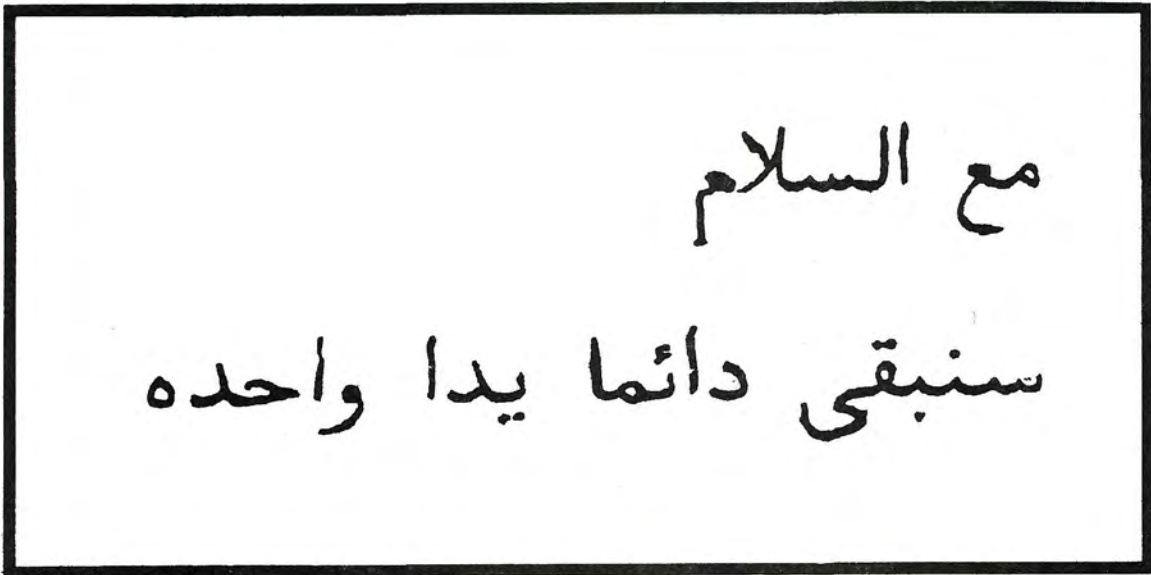 مع السلام
سنبقى دائما يدا واحده